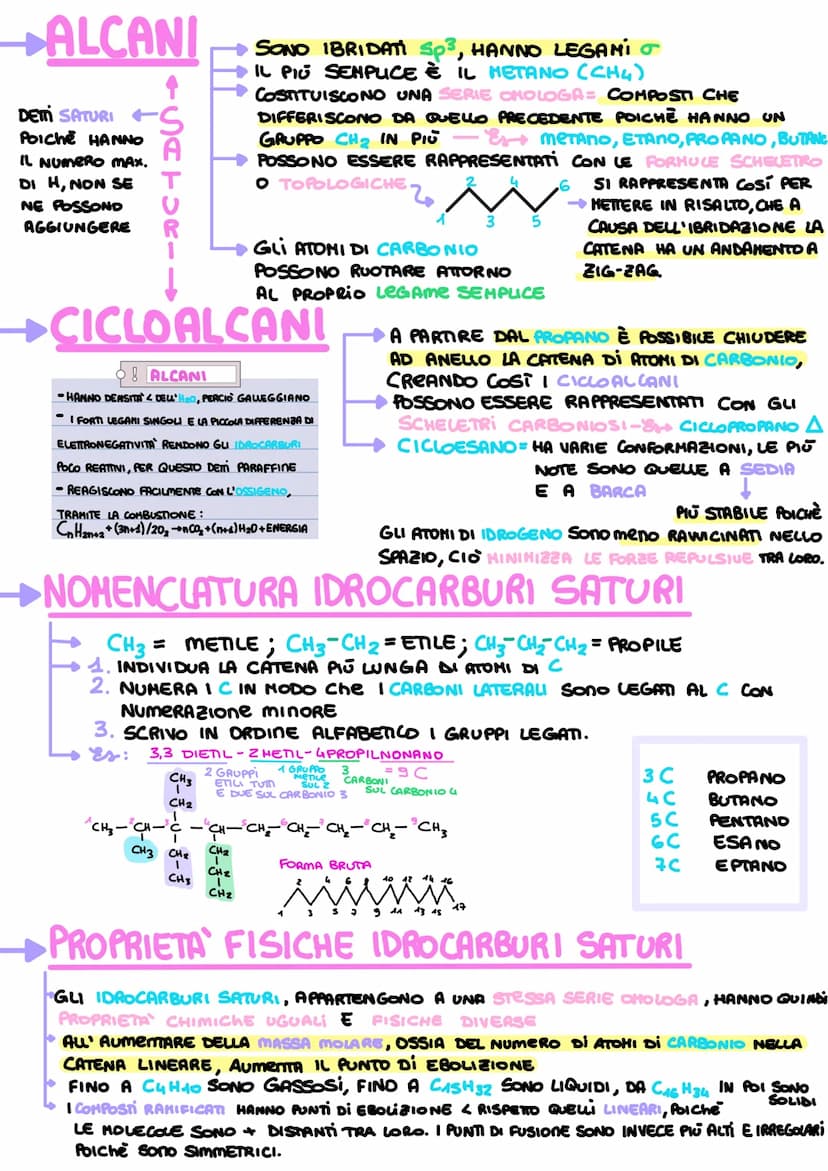 ALCANI
SATURI
DETTI SATURI
POICHÈ HANNO
IL NUMERO MAX.
DI H, NON SE
NE POSSONO
AGGIUNGERE
SONO IBRIDATI Sp³, HANNO LEGAMI σ
IL PIÙ SEMPLICE È IL METANO (CH4)
COSTITUISCONO UNA SERIE OMOLOGA= COMPOSTI CHE
DIFFERISCONO DA QUELLO PRECEDENTE POICHÈ HANNO UN
GRUPPO CH2 IN PIÙ — Es→ METANO, ETANO, PROPANO, BUTANO
POSSONO ESSERE RAPPRESENTATI CON LE FORMULE SCHELETRO
O TOPOLOGICHE
1 2 3 4 5 6
SI RAPPRESENTA COSÍ PER
METTERE IN RISALTO, CHE A
CAUSA DELL'IBRIDAZIONE LA
CATENA HA UN ANDAMENTO A
ZIG-ZAG.
GLI ATOMI DI CARBONIO
POSSONO RUOTARE ATTORNO
AL PROPRIO LEGAME SEMPLICE
CICLOALCANI
! ALCANI
- HANNO DENSITÀ < DELL'H2O, PERCIÒ GALLEGGIANO
- I FORTI LEGAMI SINGOLI E LA PICCOLA DIFFERENZA DI
ELETTRONEGATIVITÀ RENDONO GLI IDROCARBURI
POCO REATTIVI, PER QUESTO DETTI PARAFFINE
- REAGISCONO FACILMENTE CON L'OSSIGENO,
TRAMITE LA COMBUSTIONE:
CnH2n+2 + (3n+1)/2O2 →nCO2 + (n+1)H2O + ENERGIA
A PARTIRE DAL PROPANO È POSSIBILE CHIUDERE
AD ANELLO LA CATENA DI ATOMI DI CARBONIO,
CREANDO COSÌ I CICLOALCANI
POSSONO ESSERE RAPPRESENTATI CON GLI
SCHELETRI CARBONIOSI - Es→ CICLOPROPANO △
CICLOESANO= HA VARIE CONFORMAZIONI, LE PIÙ
NOTE SONO QUELLE A SEDIA
E A BARCA
PIÙ STABILE POICHÈ
GLI ATOMI DI IDROGENO SONO MENO RAVVICINATI NELLO
SPAZIO, CIÒ MINIMIZZA LE FORZE REPULSIVE TRA LORO.
NOMENCLATURA IDROCARBURI SATURI
CH3 = METILE ; CH3-CH2 = ETILE ; CH3-CH2-CH2 = PROPILE
1. INDIVIDUA LA CATENA PIÙ LUNGA DI ATOMI DI C
2. NUMERA I C IN MODO CHE I CARBONI LATERALI SONO LEGATI AL C CON
NUMERAZIONE MINORE
3. SCRIVO IN ORDINE ALFABETICO I GRUPPI LEGATI.
Es: 3,3 DIETIL - 2 METIL - 4 PROPILNONANO
2 GRUPPI
ETILI TUTTI
E DUE SUL CARBONIO 3
1 GRUPPO
METILE
SUL 2
3
CARBONI
SUL CARBONIO 4
= 9 C
CH3
CH2
¹CH3 — ²CH — ³C — ⁴CH — ⁵CH2 — ⁶CH2 — ⁷CH2 — ⁸CH2 — ⁹CH3
CH3 CH2 CH2
CH3 CH2
CH2
FORMA BRUTA
2 4 6 8 10 12 14 16
1 3 5 7 9 11 13 15 17
3C PROPANO
4C BUTANO
5C PENTANO
6C ESANO
7C EPTANO
PROPRIETÀ FISICHE IDROCARBURI SATURI
GLI IDROCARBURI SATURI, APPARTENGONO A UNA STESSA SERIE OMOLOGA, HANNO QUINDI
PROPRIETÀ CHIMICHE UGUALI E FISICHE DIVERSE
ALL' AUMENTARE DELLA MASSA MOLARE, OSSIA DEL NUMERO DI ATOMI DI CARBONIO NELLA
CATENA LINEARE, AUMENTA IL PUNTO DI EBOLIZIONE
FINO A C4H10 SONO GASSOSI, FINO A C15H32 SONO LIQUIDI, DA C16H34 IN POI SONO
SOLIDI
I COMPOSTI RAMIFICATI HANNO PUNTI DI EBOLIZIONE < RISPETTO QUELLI LINEARI, POICHÈ
LE MOLECOLE SONO + DISTANTI TRA LORO. I PUNTI DI FUSIONE SONO INVECE PIÙ ALTI E IRREGOLARI
POICHÈ SONO SIMMETRICI.